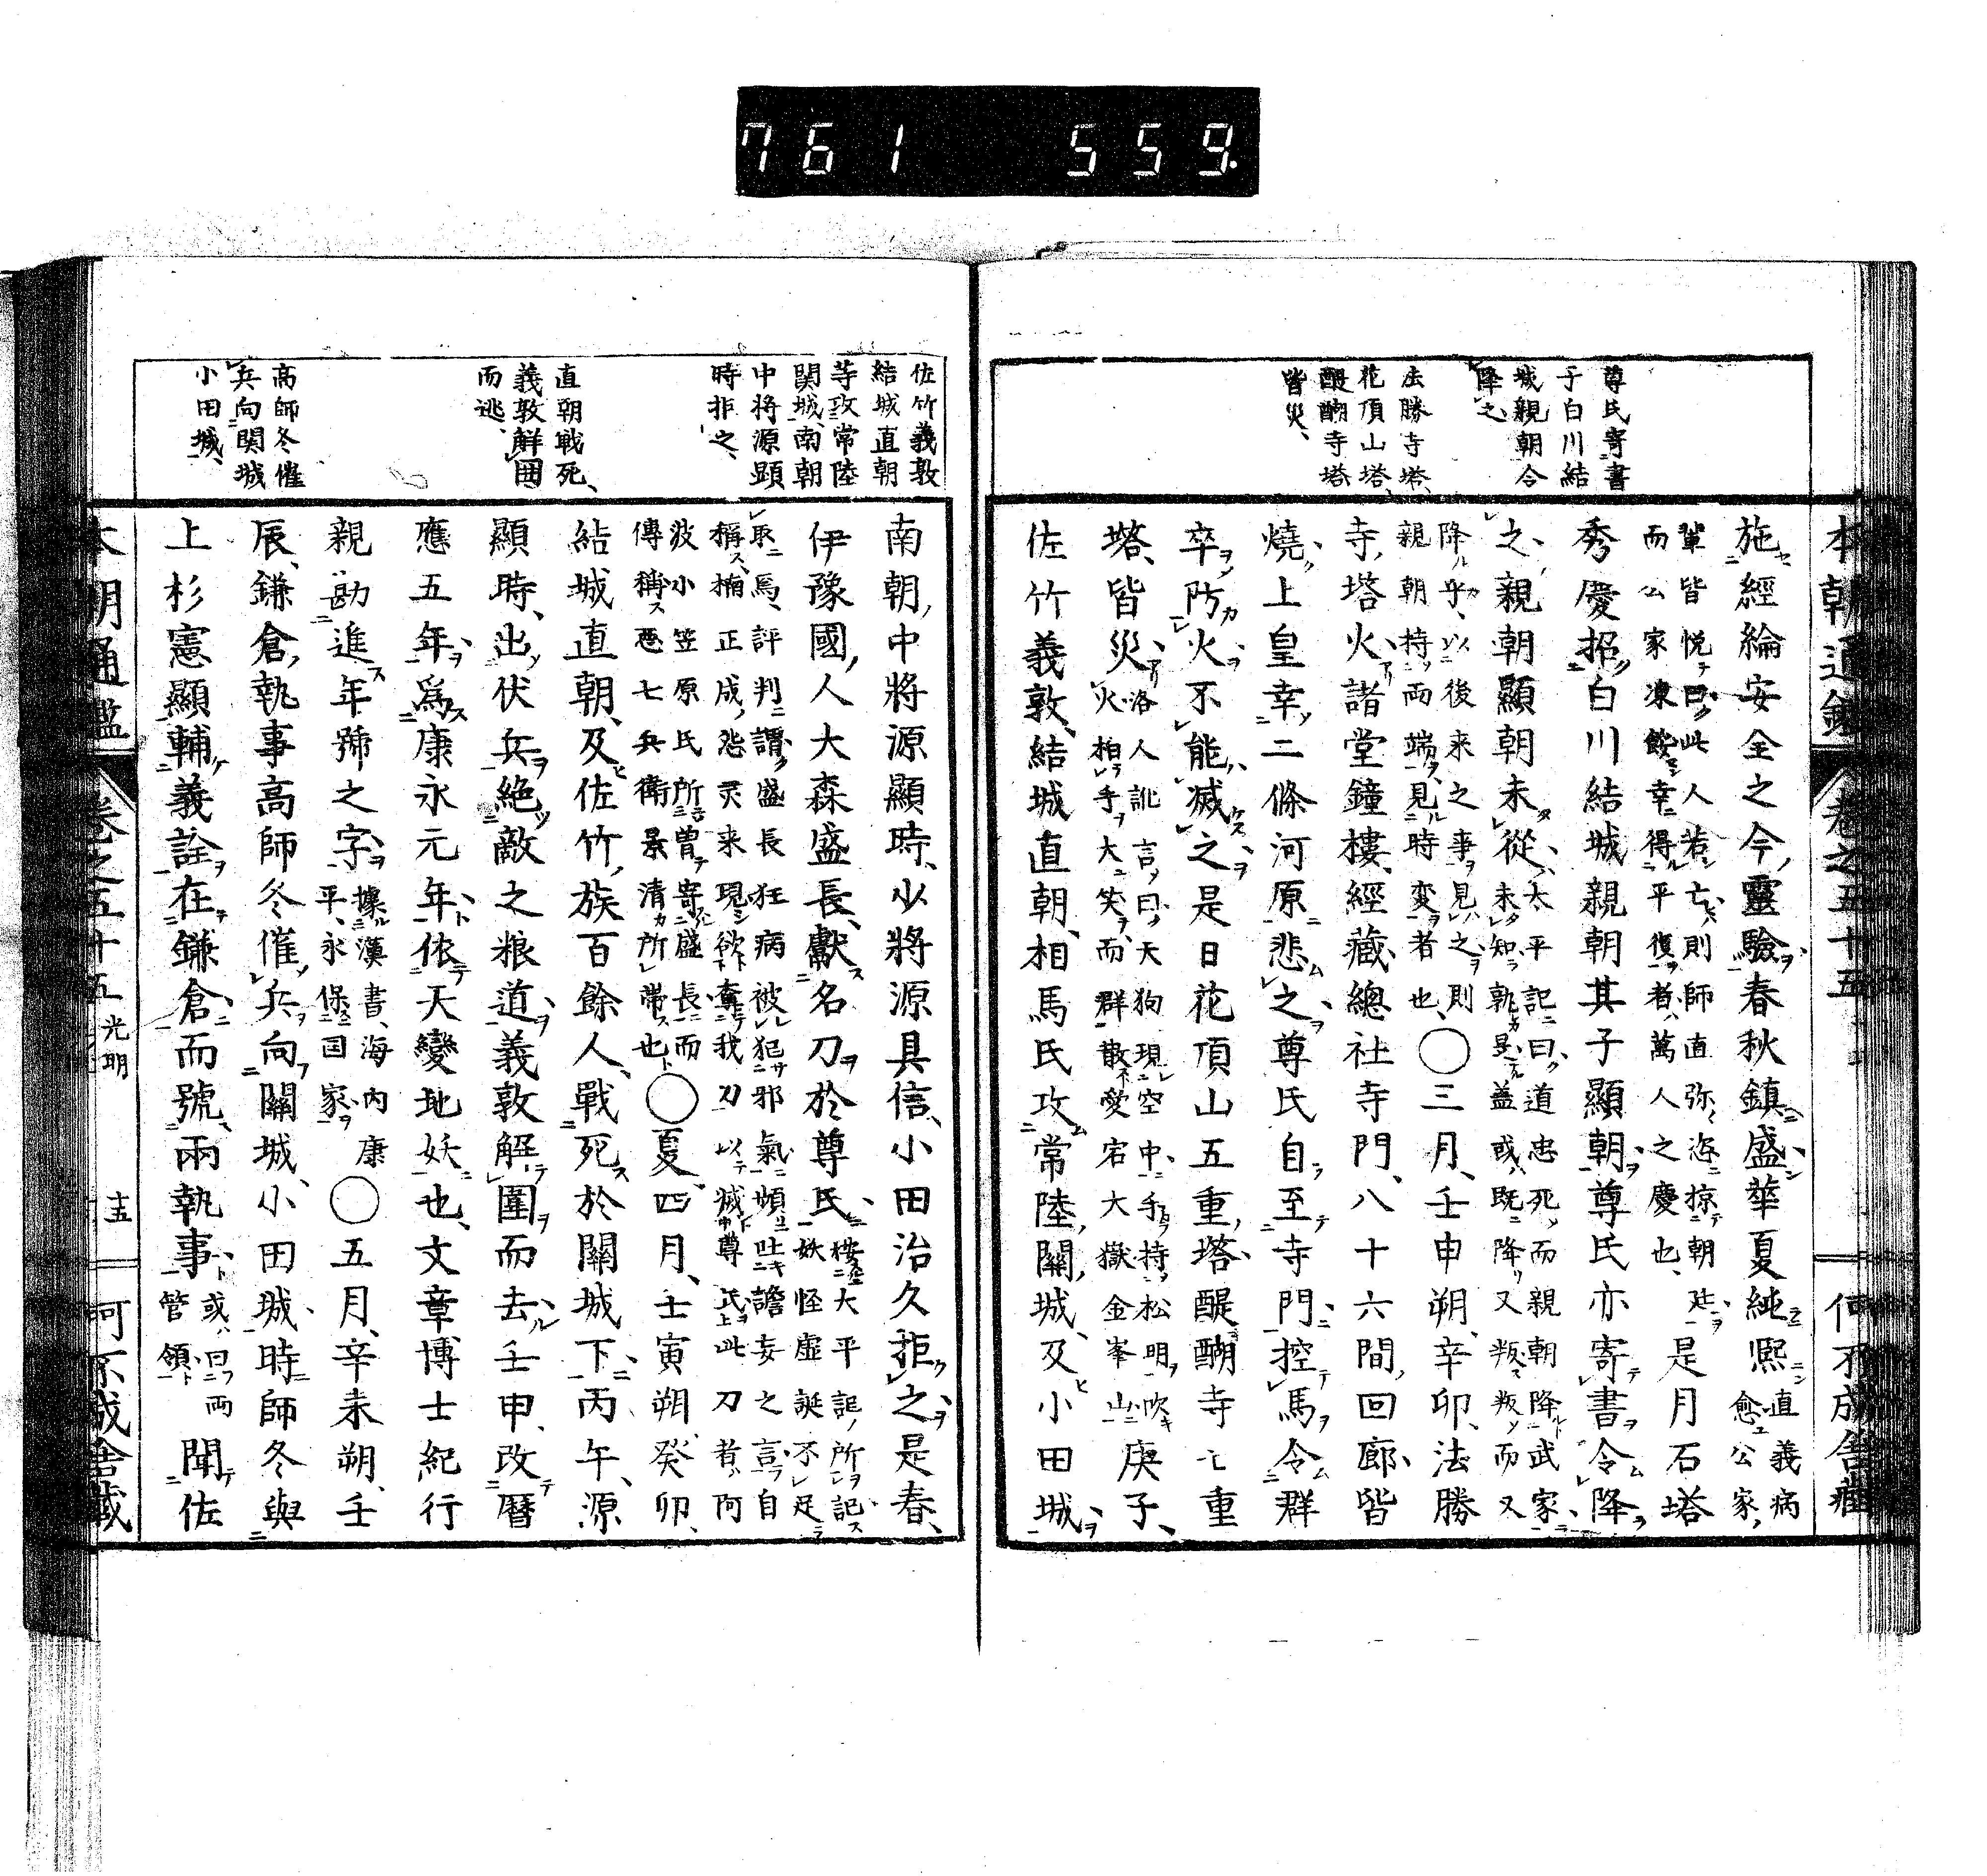 761 559.
本朝通鑑 卷之五十五 何不成舎蔵
尊氏寄書
于白川結
城親朝令
降之
法勝寺塔、
花頂山塔、
醍醐寺塔
皆災、
施經綸安全之今靈驗春秋鎮盛華夏純熈直義病
愈公家
輩皆悦曰此人若亡則師直弥恣掠朝廷
而公家凍餒幸得平復者萬人之慶也、是月石塔
秀慶招白川結城親朝其子顯朝尊氏亦寄書令降
之、親朝顯朝未從、太平記曰道忠死而親朝降武家
未知孰是盖或既降又叛叛而又
降乎、以後来之事見之則
親朝持兩端見時変者也、〇三月、壬申朔、辛卯、法勝
寺塔火諸堂鐘樓、經藏、總社寺門、八十六間回廊、皆
燒、上皇幸二條河原悲之尊氏自至寺門控馬令群
卒防火不能滅之是日花頂山五重塔、醍醐寺七重
塔、皆災、洛人訛言曰天狗現空中手持松明吹
火拍手大笑而群散愛宕大嶽金峯山庚子、
佐竹義敦、結城直朝、相馬氏攻常陸關城、及小田城、
佐竹義敦
結城直朝
等攻常陸
関城、南朝
中将源顕
時拒之、
直朝戦死、
義敦解囲
而逃、
高師冬催
兵向関城
小田城、
南朝中將源顯時、少將源具信、小田治久拒之是春、
伊豫國人大森盛長、獻名刀於尊氏按大平記所記
妖怪虚誕不足
取焉、評判謂盛長狂病被犯邪氣頻吐譫妄之言自
稱楠正成怨灵来現欲奪我刀以滅尊氏此刀者阿
波小笠原氏所曽寄盛長而
傳稱悪七兵衛景清所帯也〇夏、四月、壬寅朔、癸卯、
結城直朝、及佐竹族百餘人、戰死於關城下、丙午、源
顯時、出伏兵絶敵之粮道、義敦解圍而去、壬申、改曆
應五年、爲康永元年、依天變地妖也、文章博士紀行
親勘進年號之字、據漢書、海内康
平、永保国家〇五月、辛未朔、壬
辰、鎌倉執事高師冬催兵向關城、小田城、時師冬與
上杉憲顯輔義詮在鎌倉、而號兩執事、或曰両
管領聞佐
本朝通鑑 卷之五十五 光明 十五 何不成舎蔵